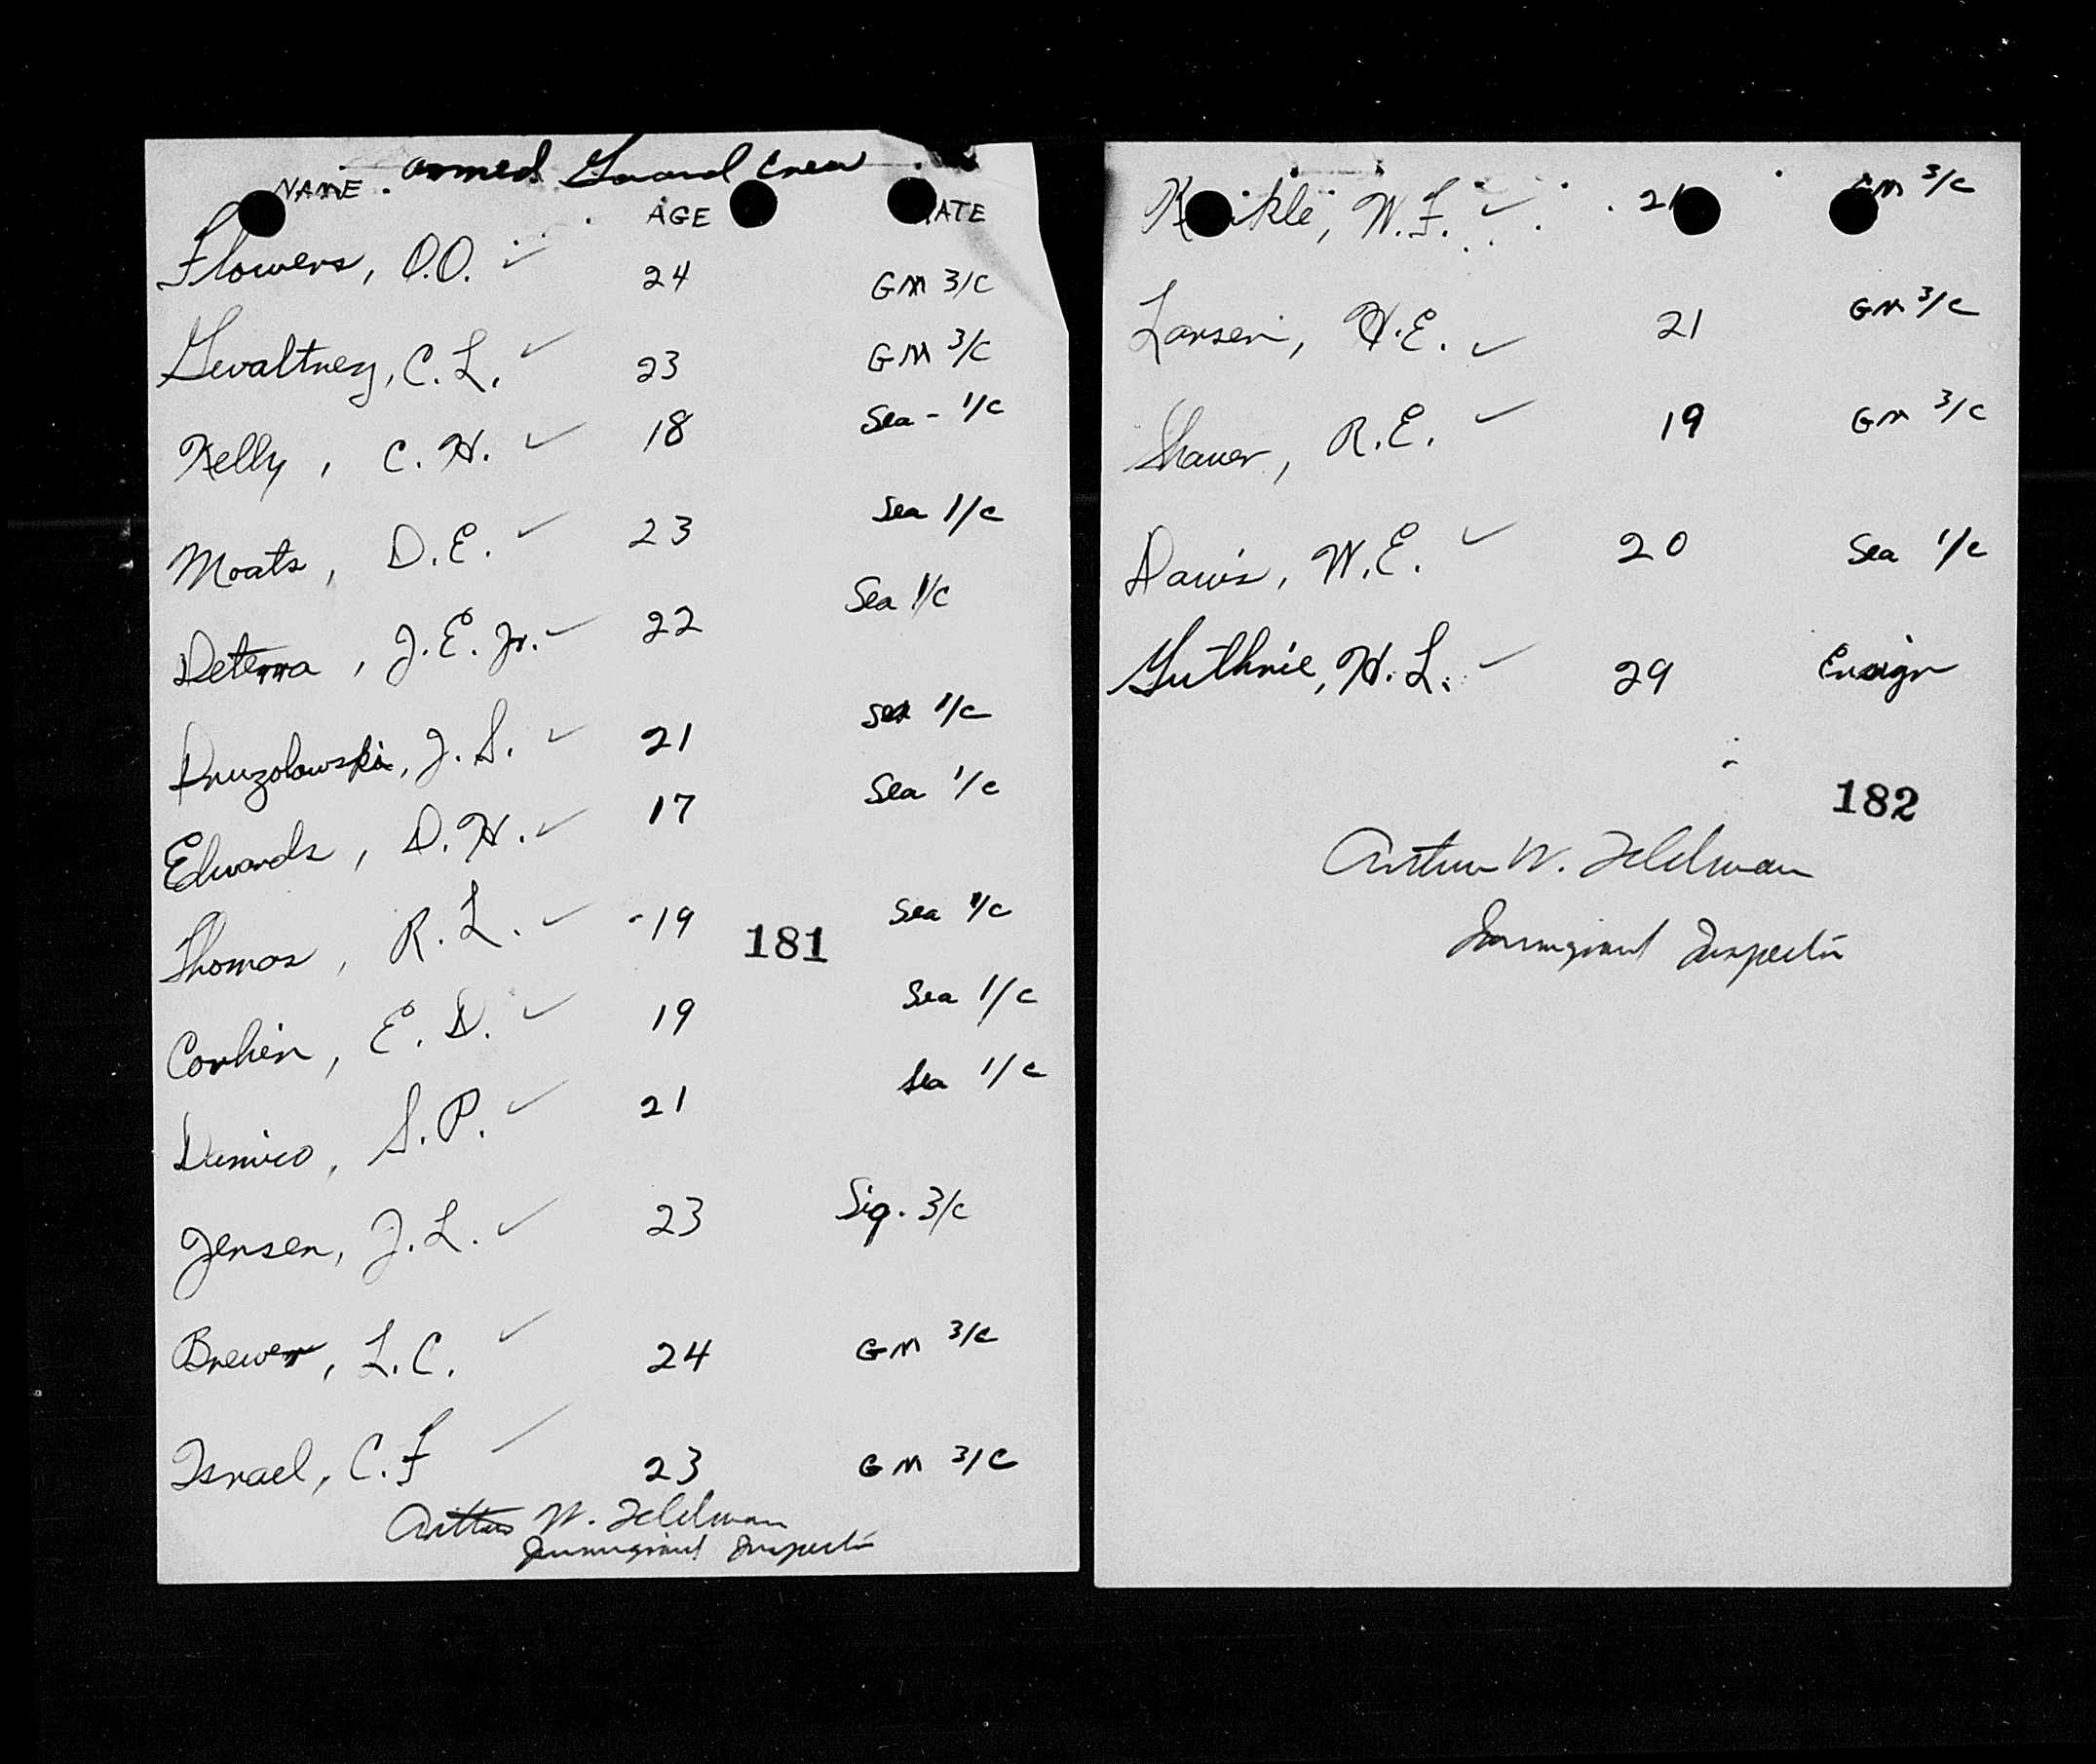 Armed Guard Crew
NAME AGE RATE
Flowers, O.O. ✓ 24 GM 3/C
Gwaltney, C.L. ✓ 23 GM 3/C
Kelly, C.H. ✓ 18 Sea - 1/C
Moats, D.E. ✓ 23 Sea 1/C
Deterra, J.E. Jr. ✓ 22 Sea 1/C
Druzolowski, J.S. ✓ 21 Sea 1/C
Edwards, D.H. ✓ 17 Sea 1/C
Thomas, R.L. ✓ -19 Sea 1/C
181
Corbin, E.D. ✓ 19 Sea 1/C
Damico, S.P. ✓ 21 Sea 1/C
Jensen, J.L. ✓ 23 Sig. 3/C
Brewer, L.C. ✓ 24 GM 3/C
Israel, C.F ✓ 23 GM 3/C
Arthur W. Feldman
Immigrant Inspector
W.F. ✓ GM 3/C
Larsen, H.E. ✓ 21 GM 3/C
Shaver, R.E. ✓ 19 GM 3/C
Davis, W.E. ✓ 20 Sea 1/C
Guthrie, H.L. ✓ 29 Ensign
182
Arthur W. Feldman
Immigrant Inspector